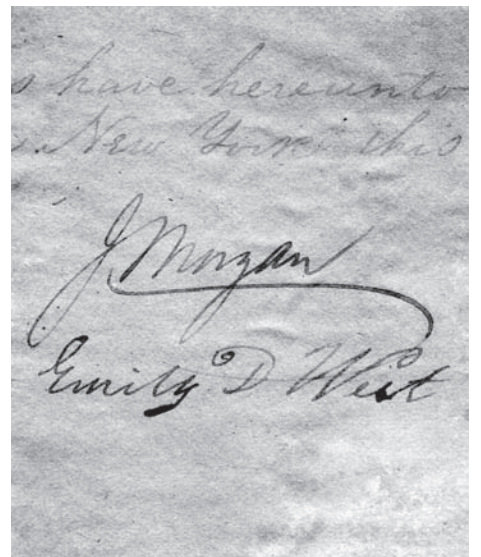 s have hereunto
New York this
J. Morgan
Emily D West